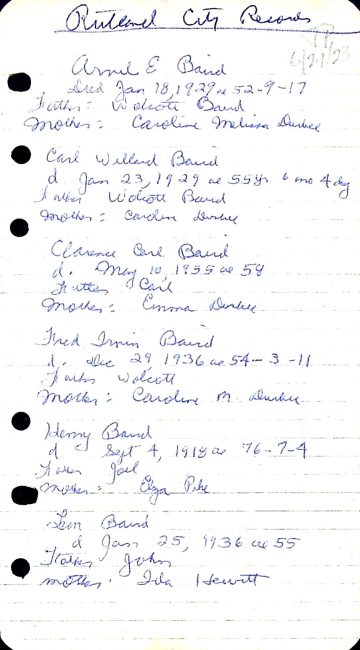 Rutland City Records
6/21/23
Arvel E Baird
Died Jan 18, 1929 ae 52-9-17
Father: Wolcott Baird
Mother: Caroline Melissa Durkee
Carl Willard Baird
d Jan 23, 1929 ae 55 yr 6 mo 4 dy
Father Wolcott Baird
Mother: Caroline Durkee
Clarence Carl Baird
d. May 10, 1955 ae 59
Father Carl
Mother: Emma Durkee
Fred Irvin Baird
d. Dec 29, 1936 ae 54-3-11
Father Wolcott
Mother: Caroline M. Durkee
Henry Baird
d Sept 4, 1918 ae 76-7-4
Father Joel
Mother: Elza Pike
Leon Baird
d Jan 25, 1936 ae 55
Father John
Mother. Ida Hewitt